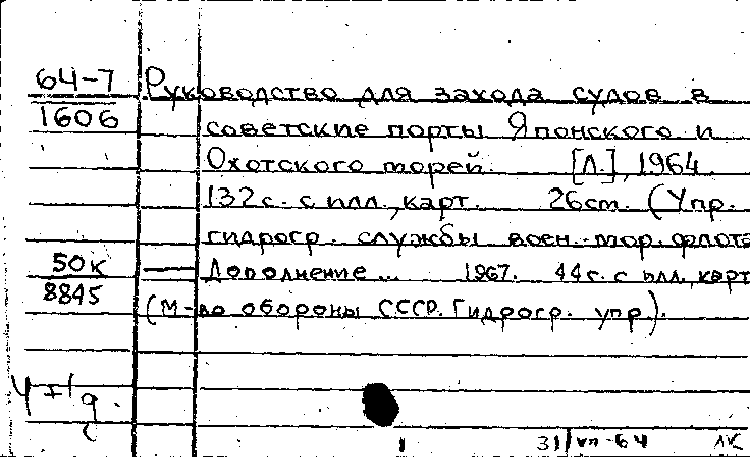 64-7 Руководство для захода судов в
1606 советские порты Японского и
Охотского морей. [Л.], 1964.
132 с. с илл., карт. 26 cm. (Упр.
гидрогр. службы воен.-мор. флота
50к — Дополнение... 1967. 44 с. с илл., карт
8845 (М-во обороны СССР. Гидрогр. упр.).
31/VII-64 ЛК